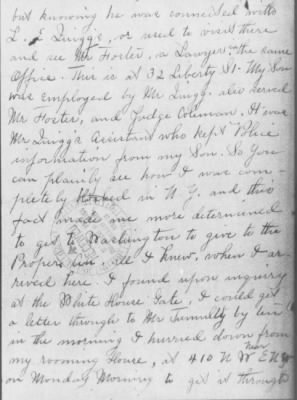 but knowing he was connected with
L. E Quigg's, or used to visit there
and see Mr Foster, a Lawyer in the same
Office. This is at 32 Liberty St. My Son
was employed by Mr Quigg. also served
Mr Foster, and Judge Coleman. It was
Mr Quiggs Assistant who kept Police
information from my Son. So You
can plainly see how I was com-
pletely blocked in N. Y. and this
fact made me more determined
to get to Washington to give to the
Proper all I knew, when I ar-
rived here. I found upon inquiry
at the White House Gate, I could get
a letter through to Mr Tumulty by ten
in the morning I hurried down from
my rooming House, at 410 N W E near
on Monday Morning to get it through